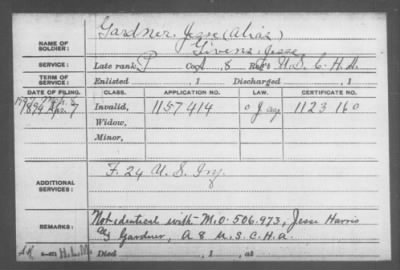 Gardner, Jesse (alias)
NAME OF SOLDIER: Givens, Jesse
SERVICE: Late rank P Co. A, 8 Reg't U.S.C.H.A.
TERM OF SERVICE: Enlisted , 1 Discharged , 1
DATE OF FILING. CLASS. APPLICATION NO. LAW. CERTIFICATE NO.
1894 Invalid, 1157414 1123160
Widow,
Minor,
ADDITIONAL SERVICES: F. 24 U.S. Inf.
REMARKS: Not identical with M.O. 506.973, Jesse Harris
Gardner, A 8 U.S.C.H.A.
Died , 1